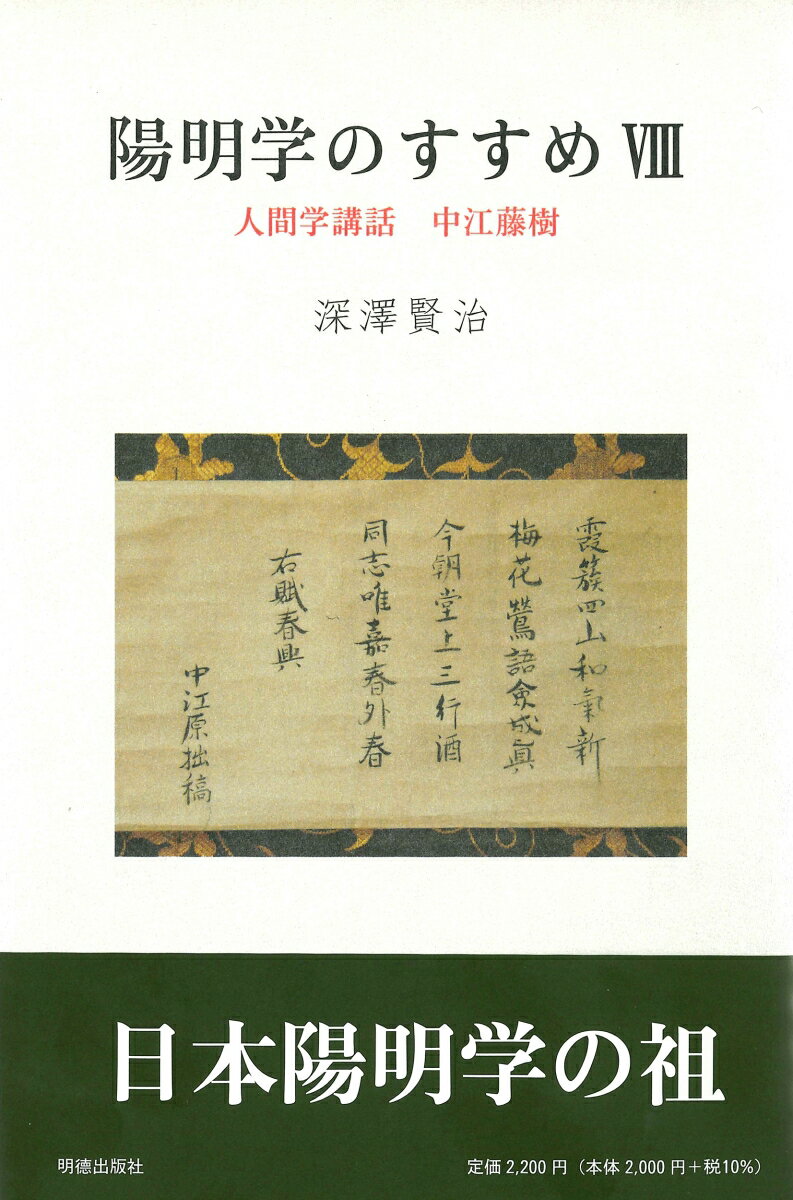 陽明学のすすめ Ⅷ
人間学講話　中江藤樹
深澤賢治
霞簇四山和氣新
梅花鶯語會成眞
今朝堂上三行酒
同志唯嘉春外春
右賦春興
中江原拙稿
日本陽明学の祖
明德出版社
定価 2,200 円（本体 2,000 円＋税10%）